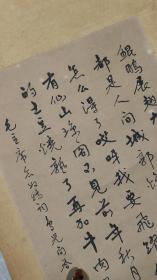 鲲鹏展翅
都是人间城郭炮
怎么得了哎呀我要飞跃
有仙山琼阁不见前年秋月
的土豆烧熟了再加牛肉
毛主席念奴娇鸟儿问答